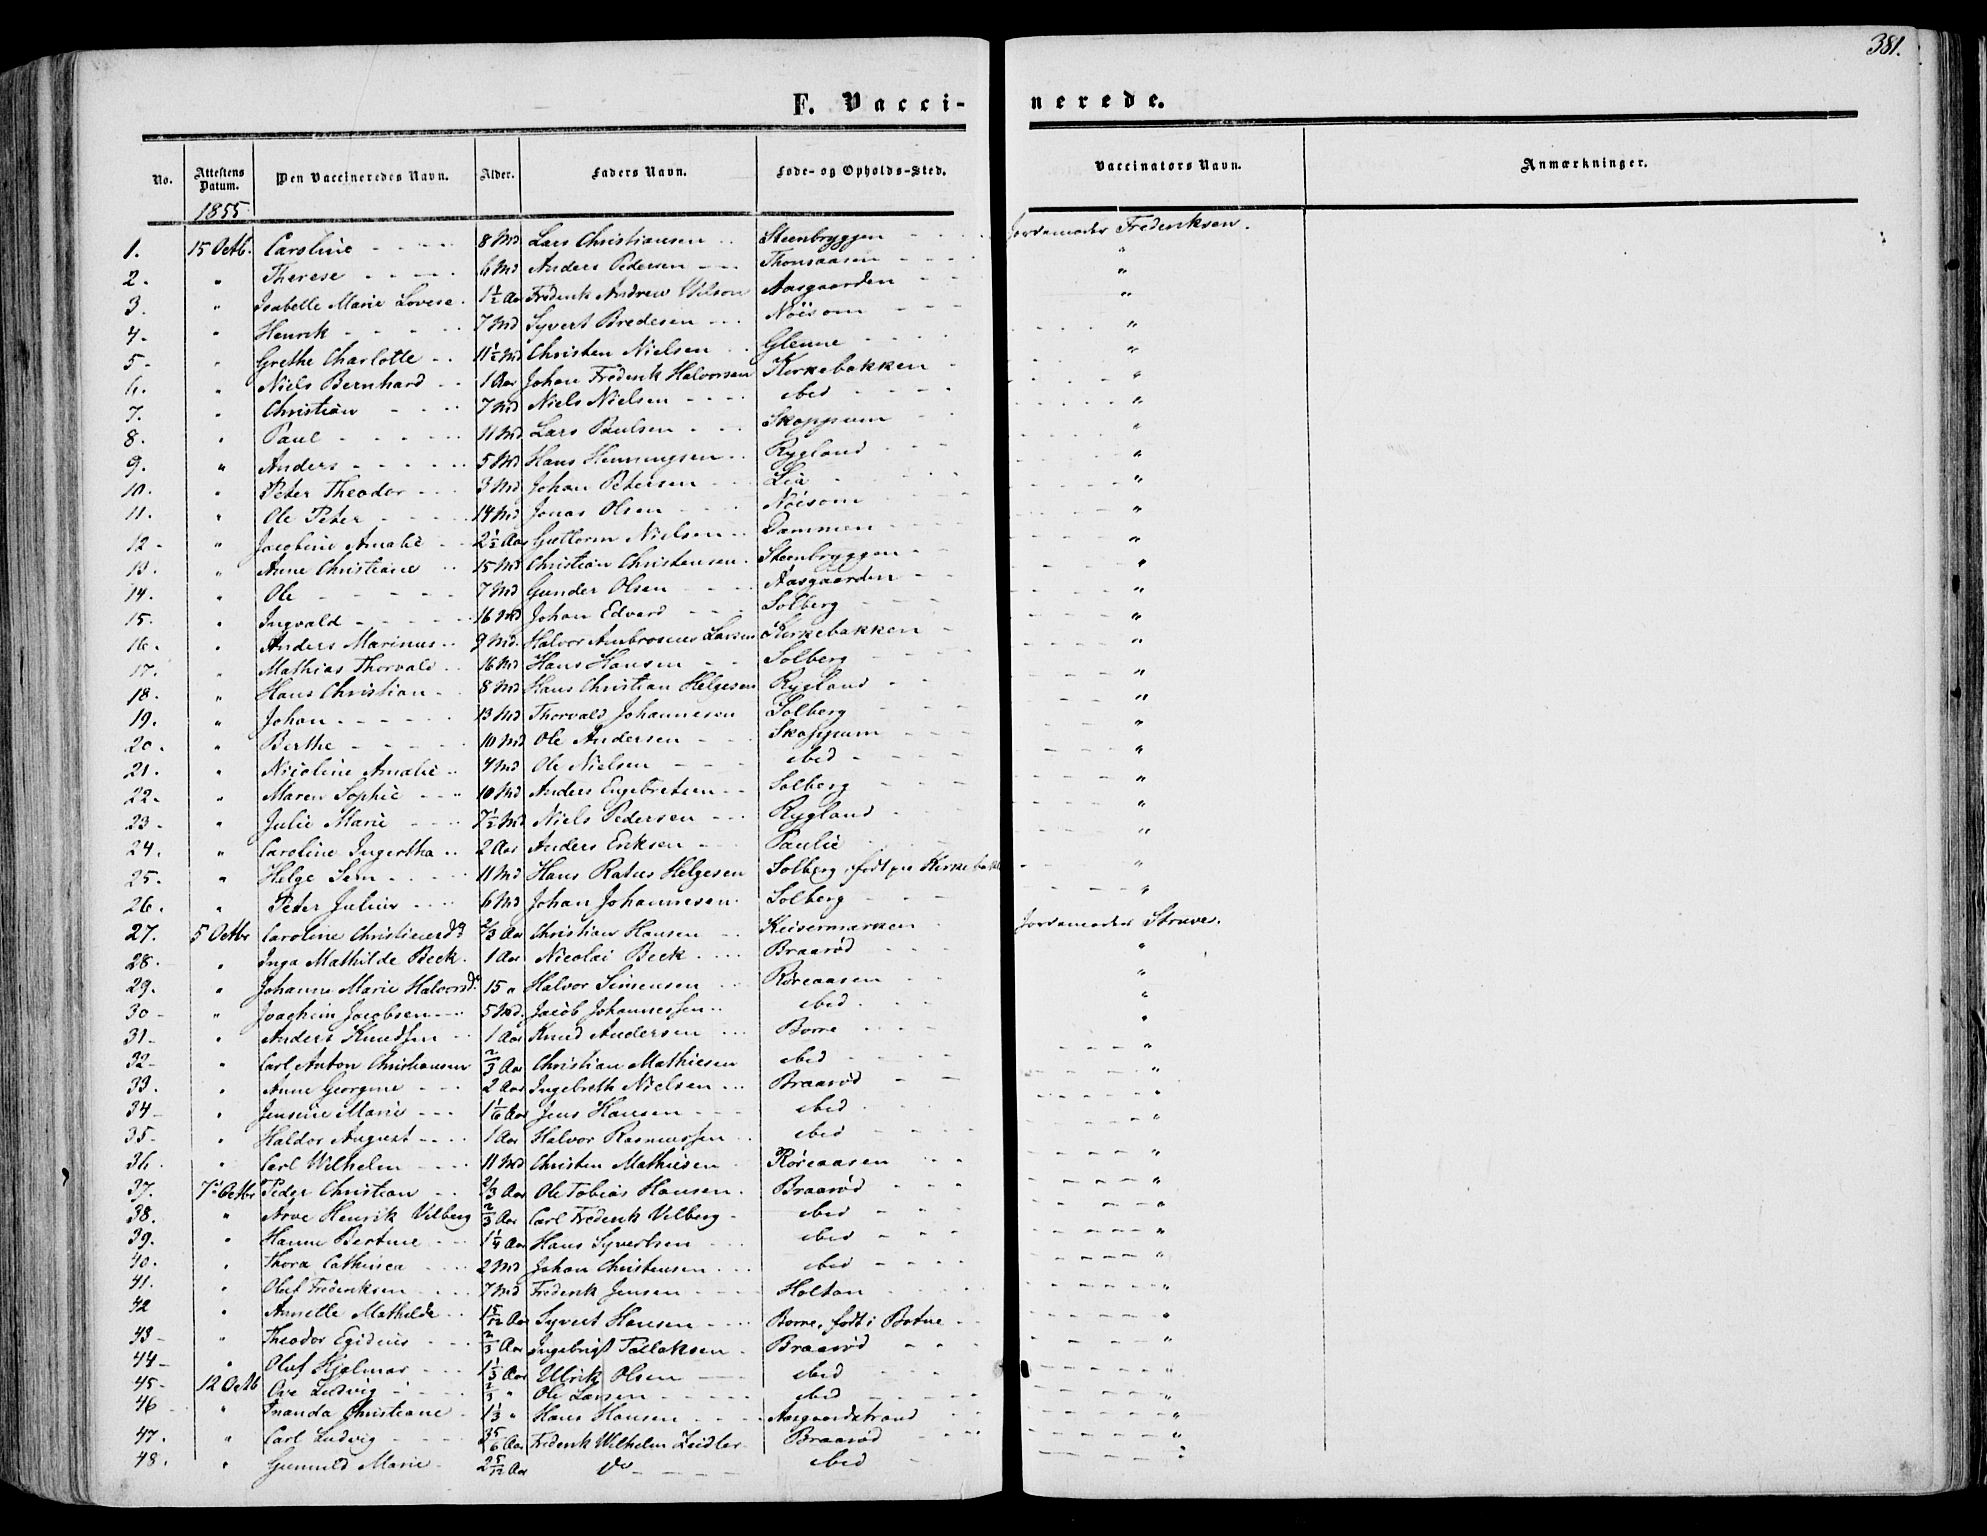 381.
F. Vacci- nerede.
No. Attestens Datum. Den Vaccineredes Navn. Alder. Faders Navn. Føde- og Opholds-Sted. Vaccinators Navn. Anmærkninger.
1855
1. 15 Octb. Caroline 8 Md Lars Christiansen Steenbryggen Jordemoder Frederiksen.
2. " Therese 6 Md Anders Pedersen Thonsaasen "
3. " Isabelle Marie Lovese 1½ Aar Frederik Andrew Wilson Aasgaarden "
4. " Henrik 7 Md Syvert Bredesen Nøisom "
5. " Grethe Charlotte 11½ Md Christen Nielsen Glenne "
6. " Niels Bernhard 1 Aar Johan Frederik Halvorsen Kirkebakken "
7. " Christian 7 Md Niels Nielsen ibid "
8. " Paul 11 Md Lars Paulsen Skoppum "
9. " Anders 5 Md Hans Henningsen Rygland "
10. " Peter Theodor 3 Md Johan Petersen Lia "
11. " Ole Peter 14 Md Jonas Olsen Nøisom "
12. " Jacobine Amalie 2½ Aar Guttorm Nielsen Dammen "
13. " Anne Christiane 15 Md Christian Christensen Steenbryggen "
14. " Ole 7 Md Gunder Olsen Aasgaarden "
15. " Ingvald 16 Md Johan Edvard Solberg "
16. " Anders Marinus 9 Md. Halvor Ambrosius Larsen Kirkebakken "
17. " Mathias Thorvald 16 Md Hans Hansen Solberg "
18. " Hans Christian 8 Md Hans Christian Helgesen Rygland "
19. " Johan 13 Md Thorvald Johannesen Solberg "
20. " Berthe 10 Md Ole Andersen Skoppum "
21. " Nicoline Amalie 4 Md Ole Nielsen ibid "
22. " Maren Sophie 10 Md Anders Engebretsen Solberg "
23. " Julie Marie 7½ Md Niels Pedersen Rygland "
24. " Caroline Ingertha 2 Aar Anders Eriksen Paulie "
25. " Helge Sem 11 Md Hans Ratus Helgesen Solberg, født paa Kirkebakk "
26. " Peter Julius 6 Md Johan Johannesen Solberg "
27. 5 Octbr Caroline Christiansd. 2/3 Aar Christian Hansen Keisermarken Jordemoder Struve.
28. " Inga Mathilde Beck 1 Aar Nicolai Beck Braarød "
29. " Johanne Marie Halvorsd. 15 " Halvor Simensen Røreaasen "
30. " Joachim Jacobsen 5 Md. Jacob Johannessen ibid "
31. " Anders Knudsen 1 Aar Knud Andersen Borre "
32. " Carl Anton Christiansen 2/3 Aar Christian Mathiesen ibid "
33. " Anne Georgine 2 Aar Ingebreth Nielsen Braarød "
34. " Jensine Marie 1 1/6 Aar Jens Hansen ibid "
35. " Haldor August 1 Aar Halvor Rasmussen ibid "
36. " Carl Wilhelm 11 Md Christen Mathisen Røreaasen "
37. 7de Octbr Peder Christian 2/3 Aar Ole Tobias Hansen Braarød "
38. " Arve Henrik Vilberg 2/3 Aar Carl Frederik Vilberg ibid "
39. " Hanne Bertine 1¼ Aar Hans Syvertsen ibid "
40. " Thora Cathinca 2 Md Johan Christensen ibid "
41. " Oluf Frederiksen 7 Md Frederik Jensen Holtan "
42 " Annette Mathilde 1 5/12 Aar Syvert Hansen Borre, født i Botne "
43. " Theodor Egidius 2/3 Aar Ingebrigt Tollaksen Braarød "
44. " Oluf Hjalmar 1 1/3 Aar Ulrik Olsen ibid "
45. 12 Octb Ove Ludvig 2/3 " Ole Larsen ibid "
46 " Inanda Christiane 1 1/3 " Hans Hansen Aasgaardstrand "
47. " Carl Ludvig 3 5/6 Aar Frederik Wilhelm Zeidler Braarød "
48. " Gunnild Marie 2 5/12 Aar Do ibid "